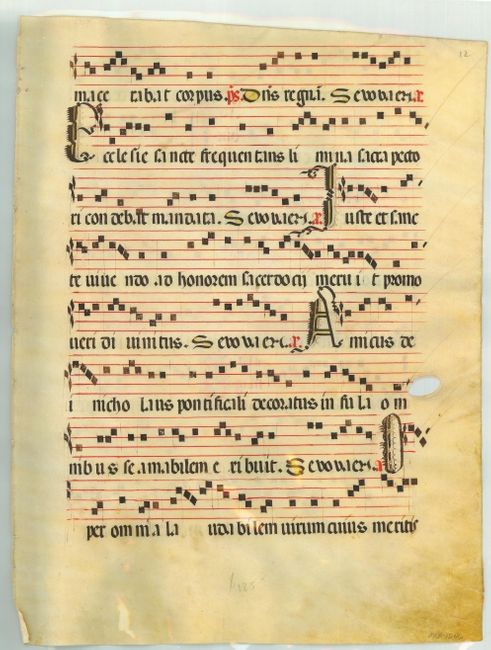 12
mace rabat corpus. ps. Dns regni. Sevovaen. a.
Ecclesie sancte frequentans limina sacra pecto
ri condebat mandata. Sevovaen. a. Iuste et sanc
te vivendo ad honorem sacerdocij meruit promo
veri divinitus. Sevovaen. a. Amicus de
i nicholaus pontificali decoratus infula om
nibus se amabilem exibuit. Sevovaen. a. O
per omnia laudabilem virum cuius meritis